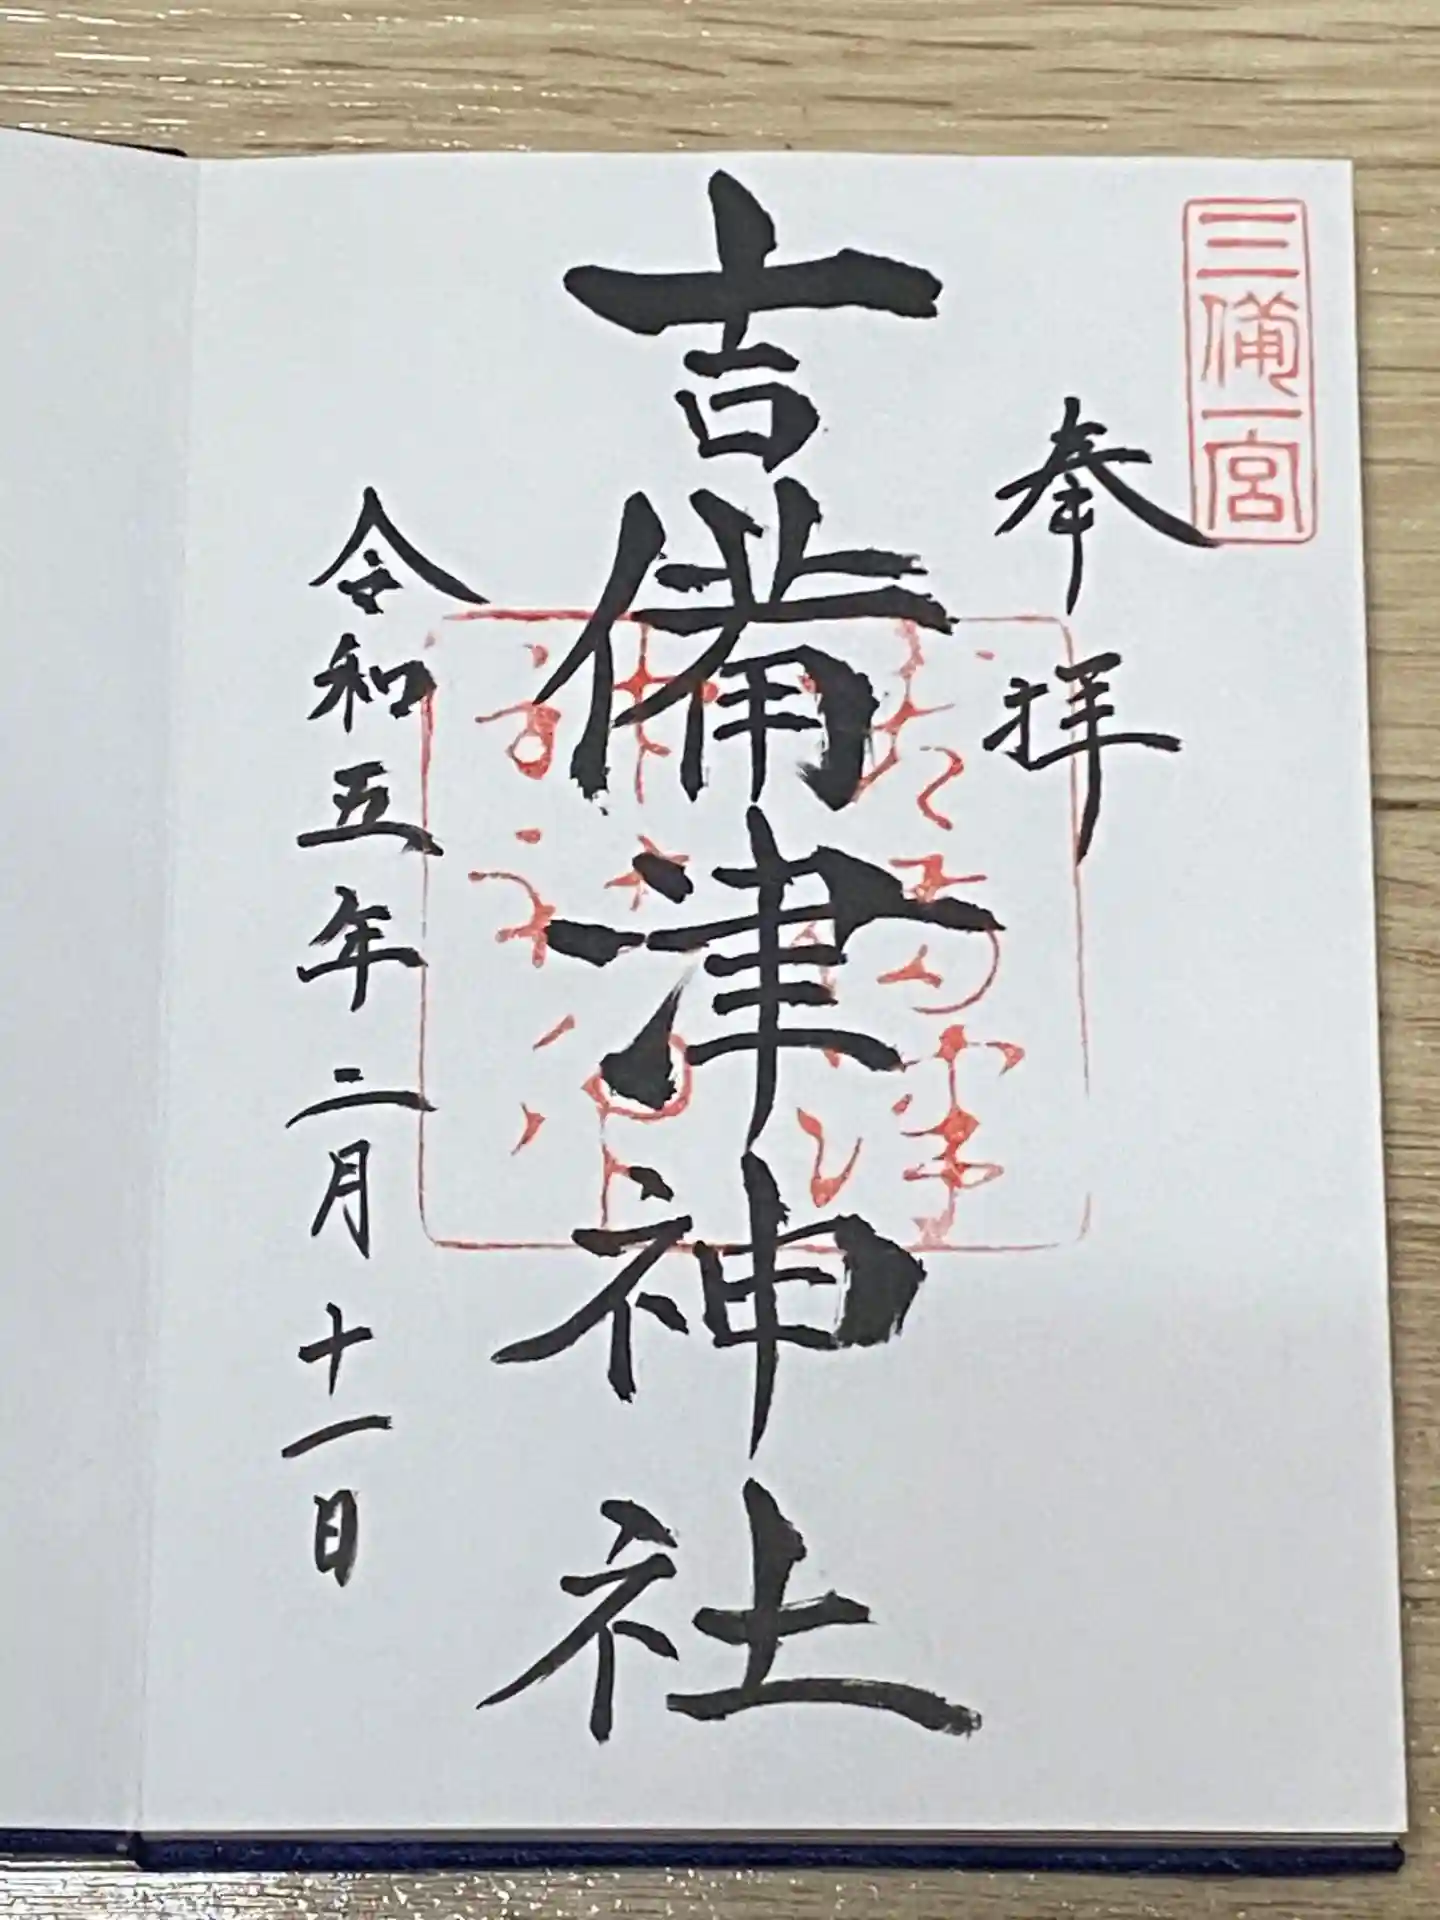 三備一宮
奉拝
吉備津神社
令和五年二月十一日